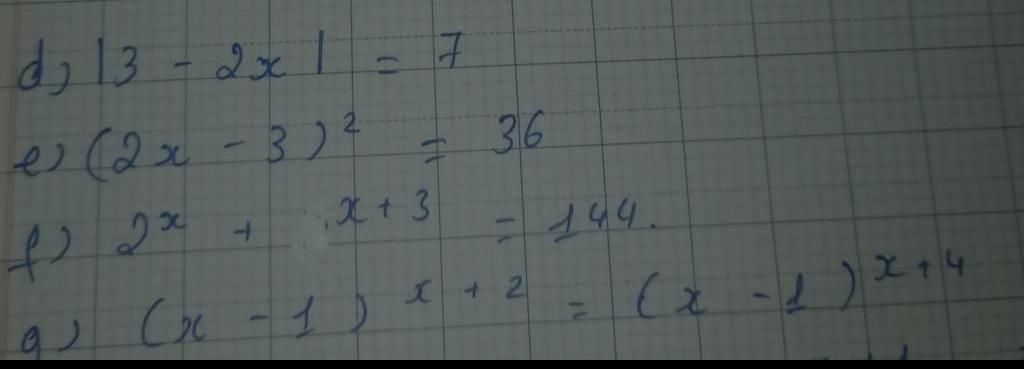 d) |3 - 2x| = 7
e) (2x - 3)² = 36
f) 2ˣ + ˣ⁺³ = 144.
g) (x - 1)ˣ⁺² = (x - 1)ˣ⁺⁴